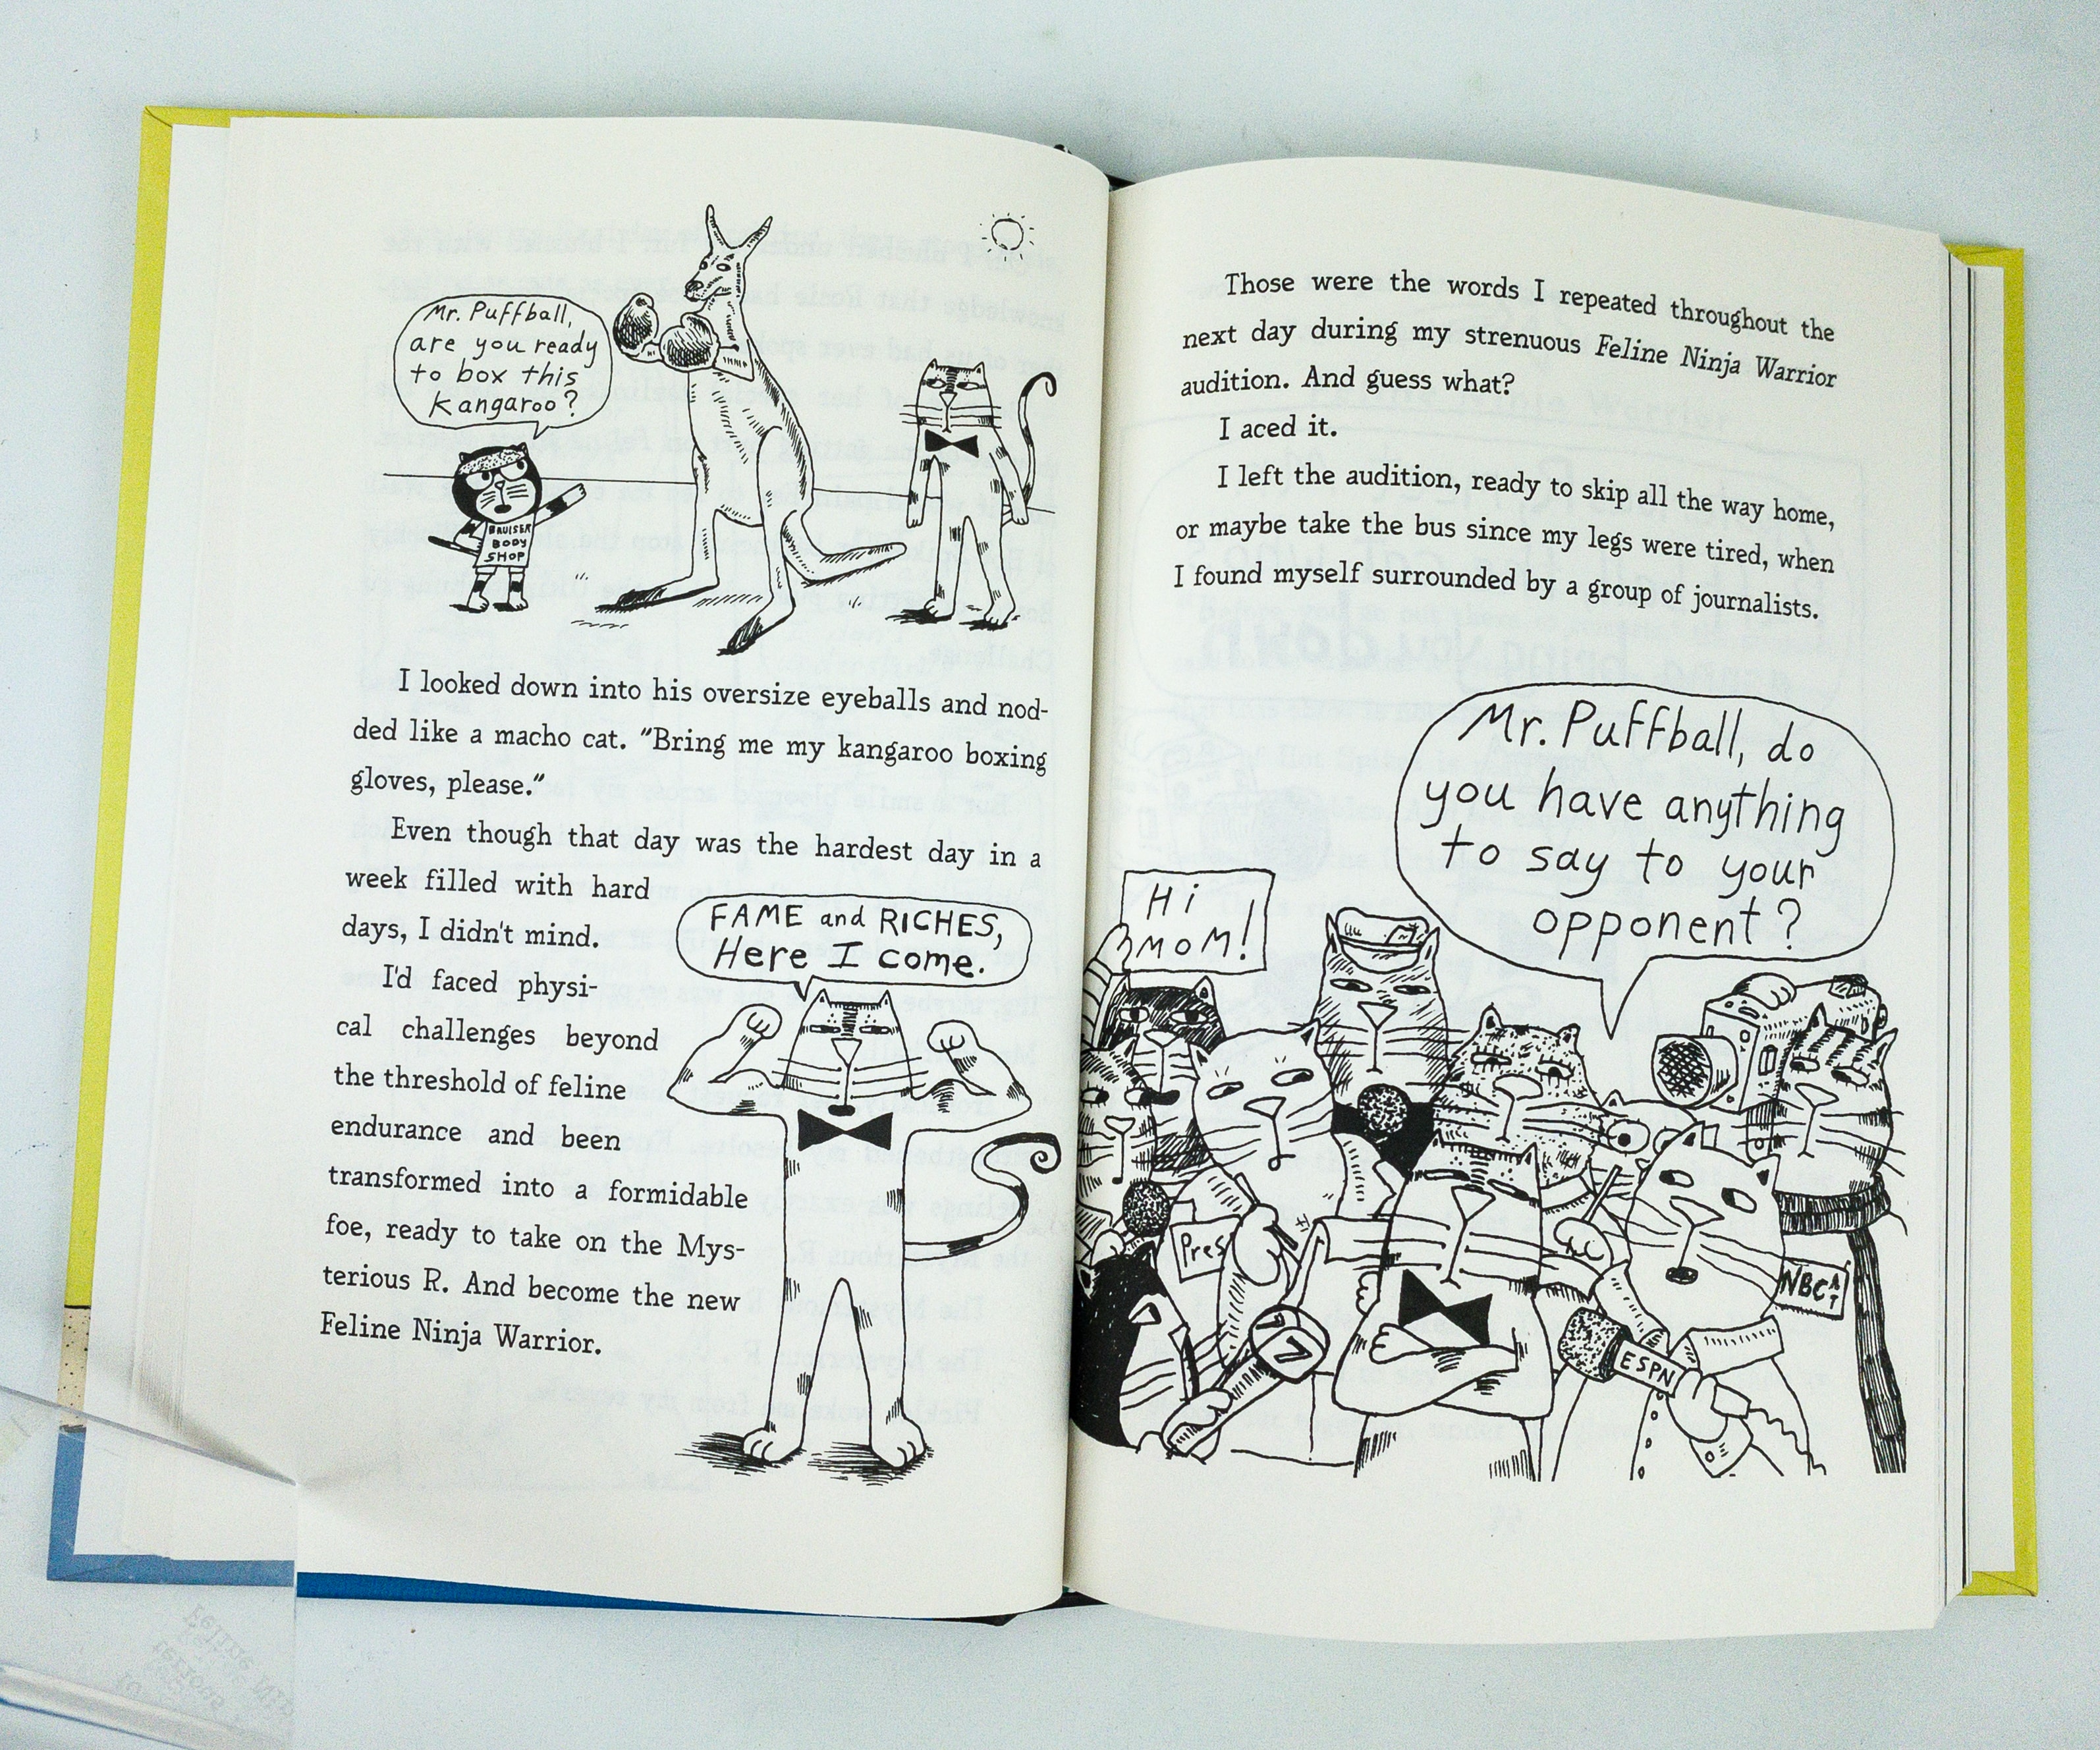 Mr. Puffball,
are you ready
to box this
kangaroo?
BRUISER
BODY
SHOP
I looked down into his oversize eyeballs and nod-
ded like a macho cat. "Bring me my kangaroo boxing
gloves, please."
Even though that day was the hardest day in a
week filled with hard
days, I didn't mind.
I'd faced physi-
cal challenges beyond
the threshold of feline
endurance and been
transformed into a formidable
foe, ready to take on the Mys-
terious R. And become the new
Feline Ninja Warrior.
FAME and RICHES,
Here I come.
Those were the words I repeated throughout the
next day during my strenuous Feline Ninja Warrior
audition. And guess what?
I aced it.
I left the audition, ready to skip all the way home,
or maybe take the bus since my legs were tired, when
I found myself surrounded by a group of journalists.
Mr. Puffball, do
you have anything
to say to your
opponent?
Hi
MOM!
Pres
7
NBCAT
ESPN